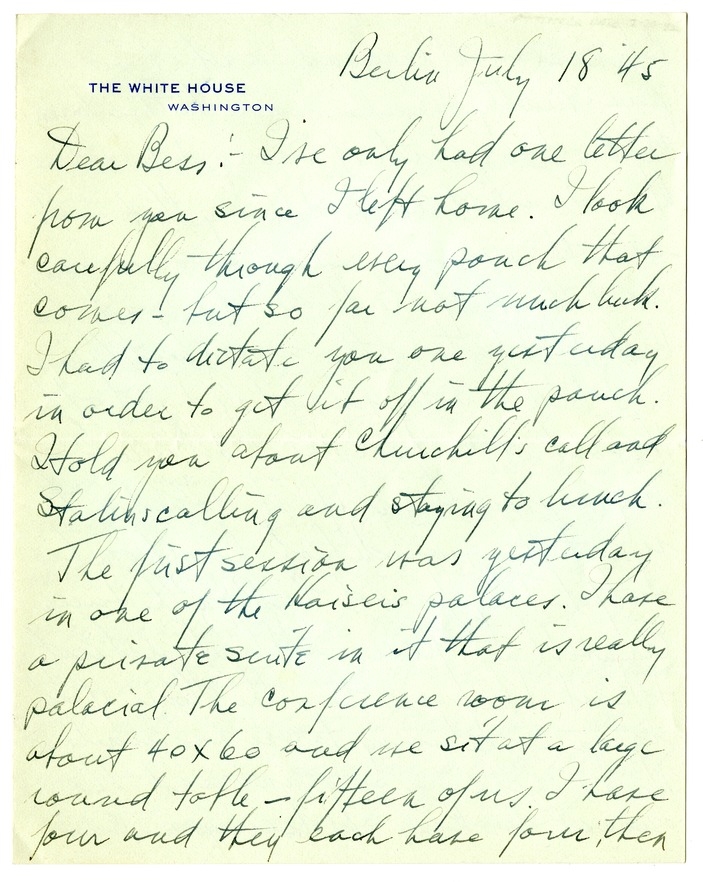 Berlin July 18 '45
THE WHITE HOUSE
WASHINGTON
Dear Bess:- I've only had one letter
from you since I left home. I look
carefully through every pouch that
comes - but so far not much luck.
I had to dictate you one yesterday
in order to get it off in the pouch.
I told you about Churchill's call and
Stalins calling and staying to lunch.
The first session was yesterday
in one of the Kaiseis palaces. I have
a private suite in it that is really
palacial. The conference room is
about 40x60 and we sit at a large
round table - fifteen of us. I have
four and they each have four, then